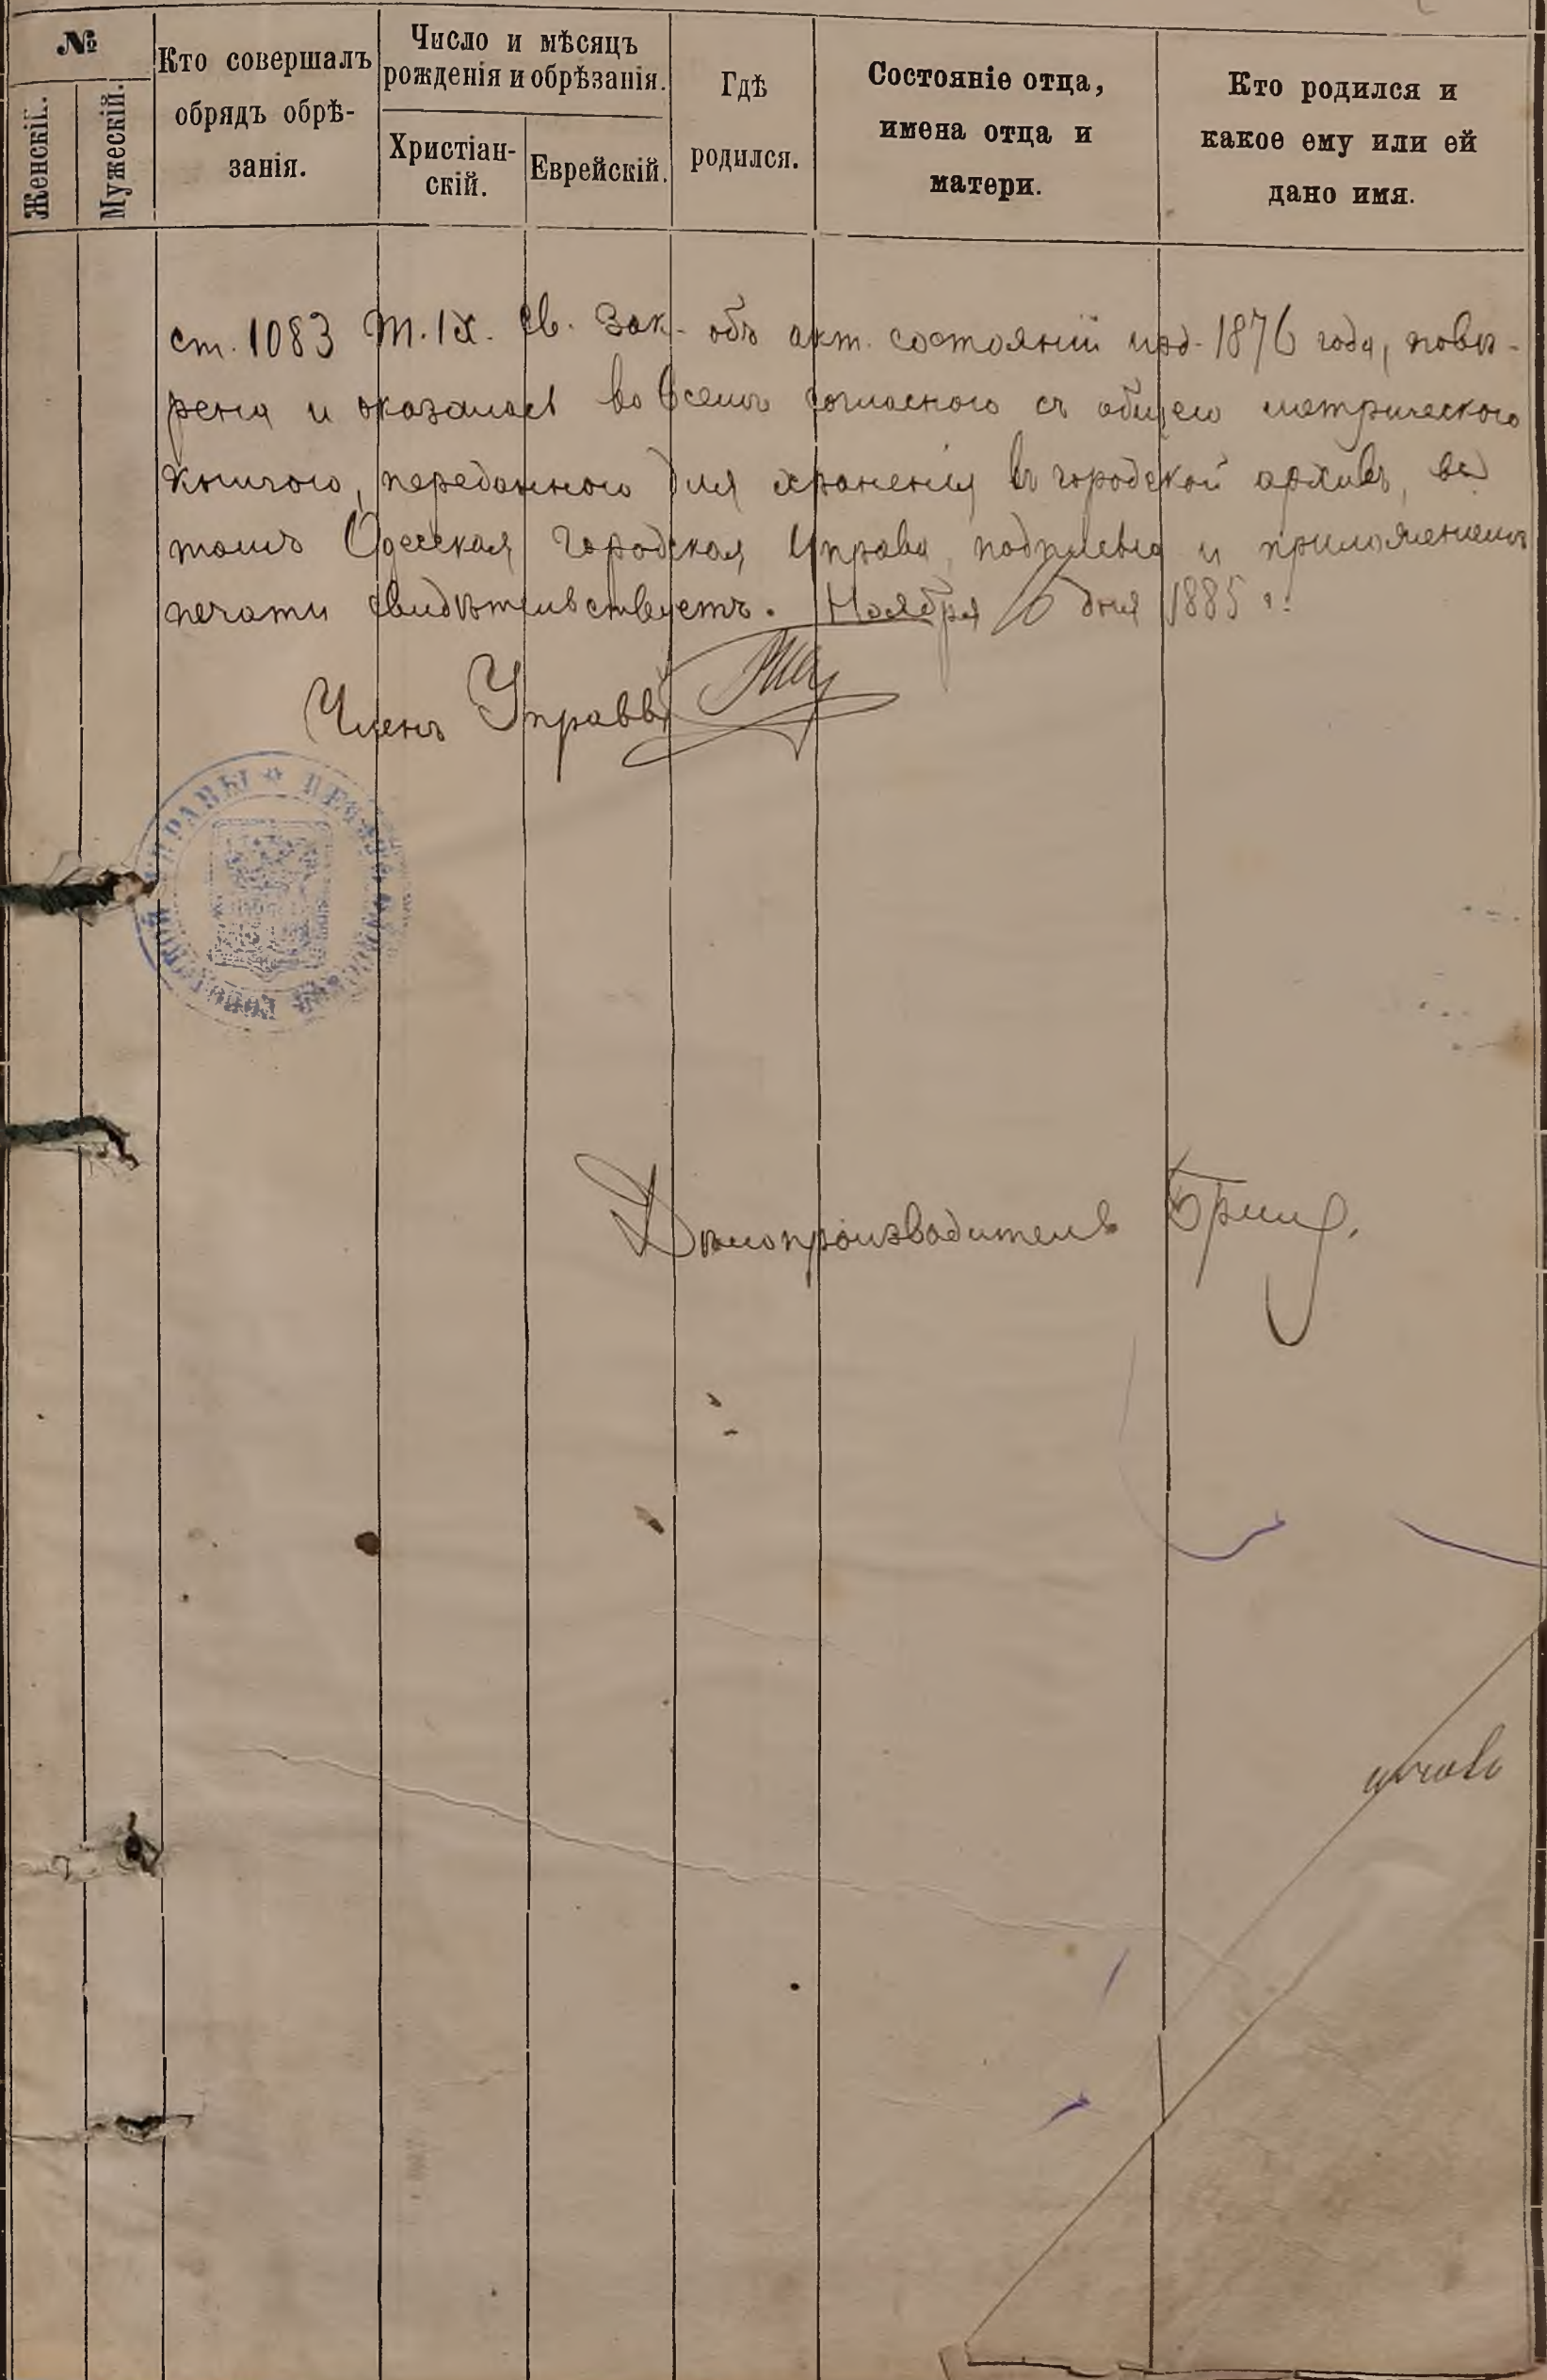 №
Женскій.
Мужескій.
Кто совершалъ
обрядъ обрѣ-
занія.
Число и мѣсяцъ
рожденія и обрѣзанія.
Христіан-
скій.
Еврейскій.
Гдѣ
родился.
Состояніе отца,
имена отца и
матери.
Кто родился и
какое ему или ей
дано имя.
ст. 1083 т. IX. Св. Зак. объ акт. состояній изд. 1876 года, повѣ-
рена и оказалась во всемъ согласною съ общею метрическою
книгою, переданною для храненія въ городской архивъ, въ
томъ Одесская Городская Управа, подписью и приложеніемъ
печати свидѣтельствуетъ. Ноября 16 дня 1885 г.
Членъ Управы
УПРАВЫ ☆ ПЕЧАТЬ ОДЕССКОЙ ГОРОДСКОЙ
Дѣлопроизводитель